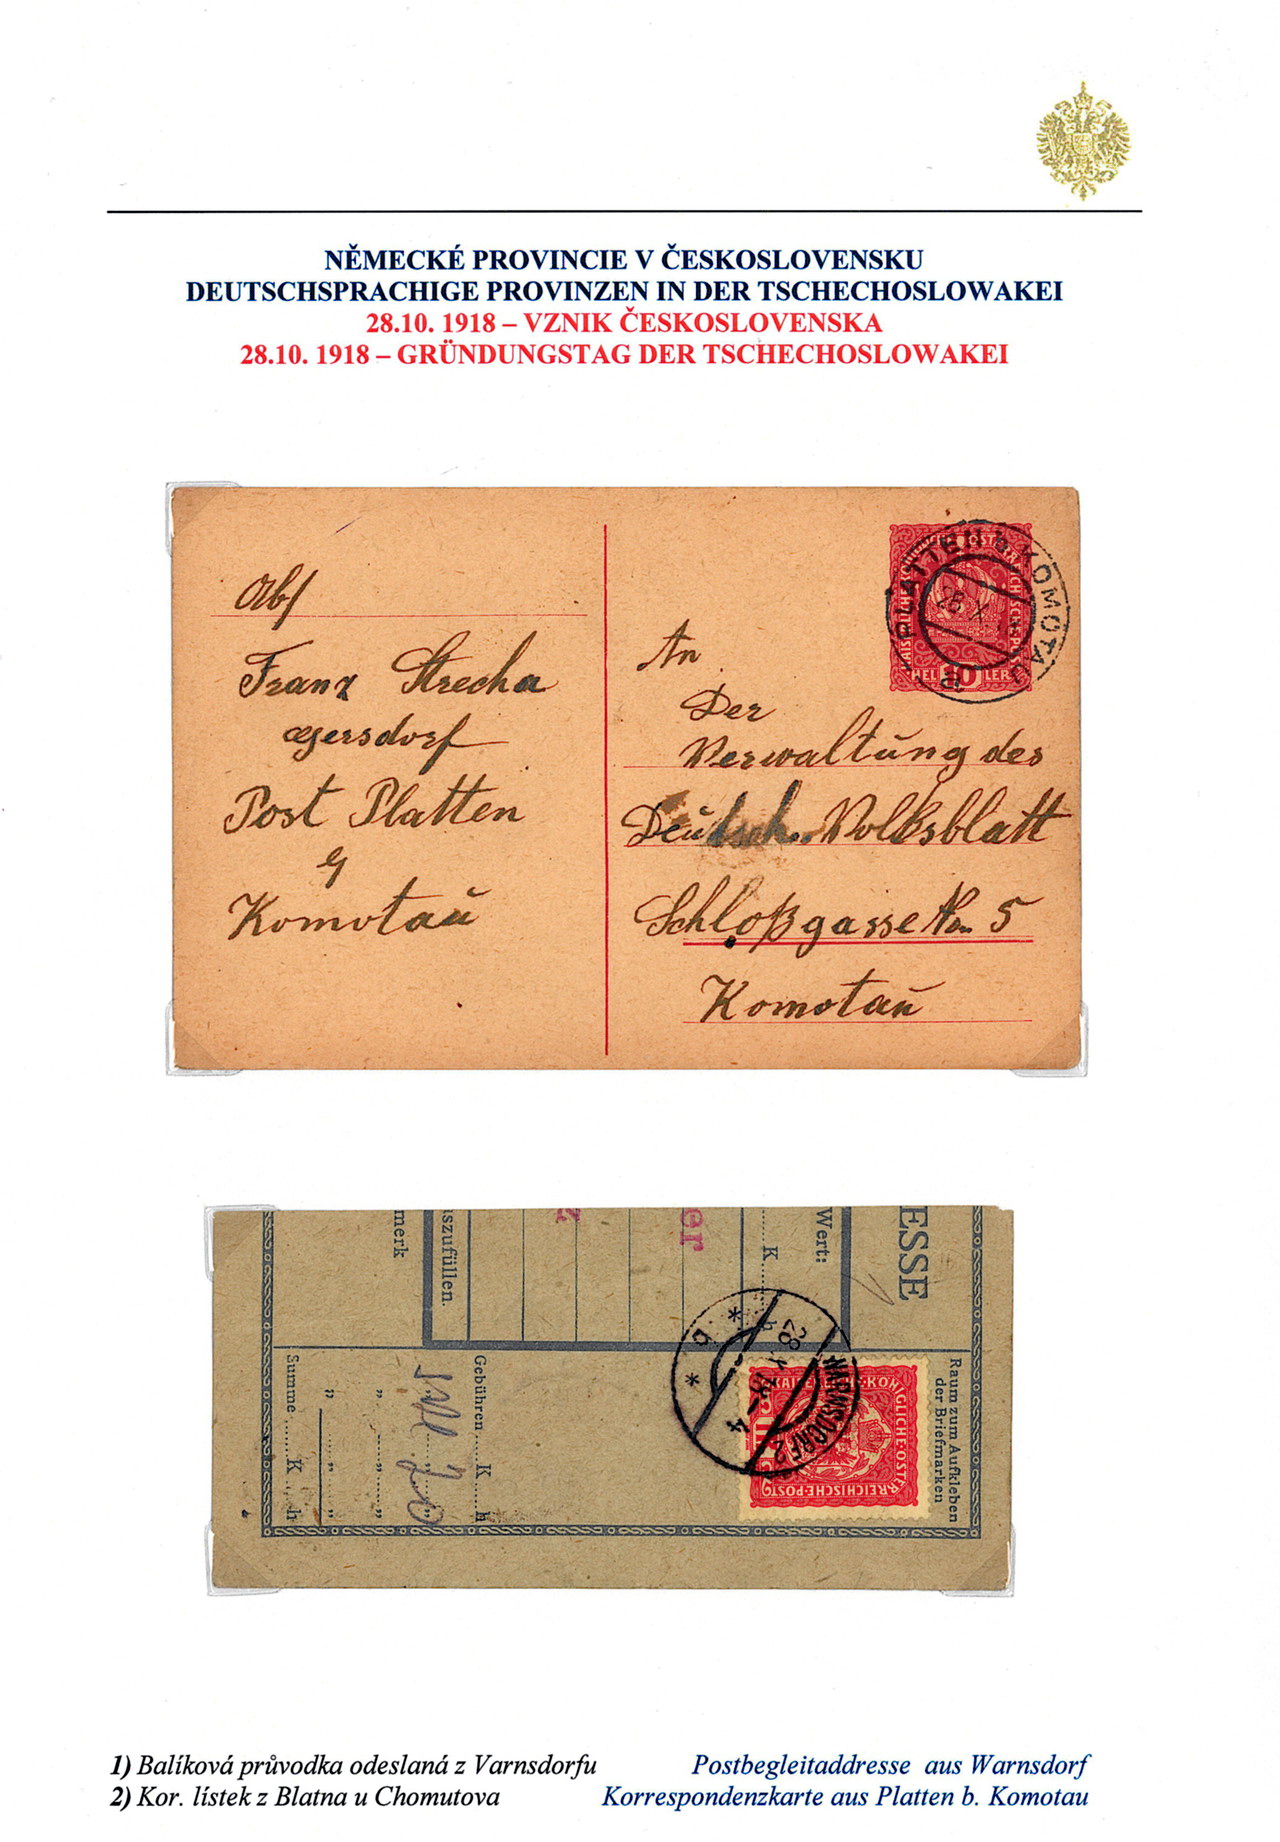 NĚMECKÉ PROVINCIE V ČESKOSLOVENSKU
DEUTSCHSPRACHIGE PROVINZEN IN DER TSCHECHOSLOWAKEI
28.10. 1918 – VZNIK ČESKOSLOVENSKA
28.10. 1918 – GRÜNDUNGSTAG DER TSCHECHOSLOWAKEI
Abs
Franz Strecha
Gersdorf
Post Platten
Komotau
PLATTEN b. KOMOTAU
28 X
HELLER
10
An
Der
Verwaltung des
Deutsch. Volksblatt
Schloßgasse No. 5
Komotau
ESSE
Wert:
K
er
z
szufüllen.
merk
Raum zum Aufkleben
der Briefmarken
KÖNIGLICHE·ÖSTERREICHISCHE·POST
WARNSDORF 2
28 X 18 – 4
* g *
Gebühren K h
„ „
„ „
„ „
Summe K h
1) Balíková průvodka odeslaná z Varnsdorfu Postbegleitaddresse aus Warnsdorf
2) Kor. lístek z Blatna u Chomutova Korrespondenzkarte aus Platten b. Komotau